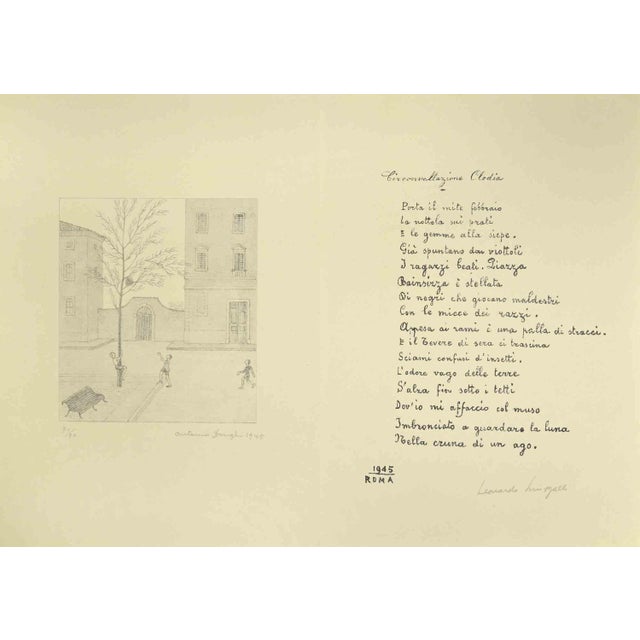 Circonvallazione Clodia
Porta il mite febbraio
La nottola sui prati
E le gemme alla siepe.
Già spuntano dai viottoli
I ragazzi beati. Piazza
Bainsizza è stellata
Di negri che giocano maldestri
Con le micce dei razzi.
Appesa ai rami è una palla di stracci.
E il Tevere di sera ci trascina
Sciami confusi d'insetti.
L'odore vago delle terre
S'alza fin sotto i tetti
Dov'io mi affaccio col muso
Imbronciato a guardare la luna
Nella cruna di un ago.
1945
ROMA
Antonio Donghi 1945
Leonardo Sinisgalli